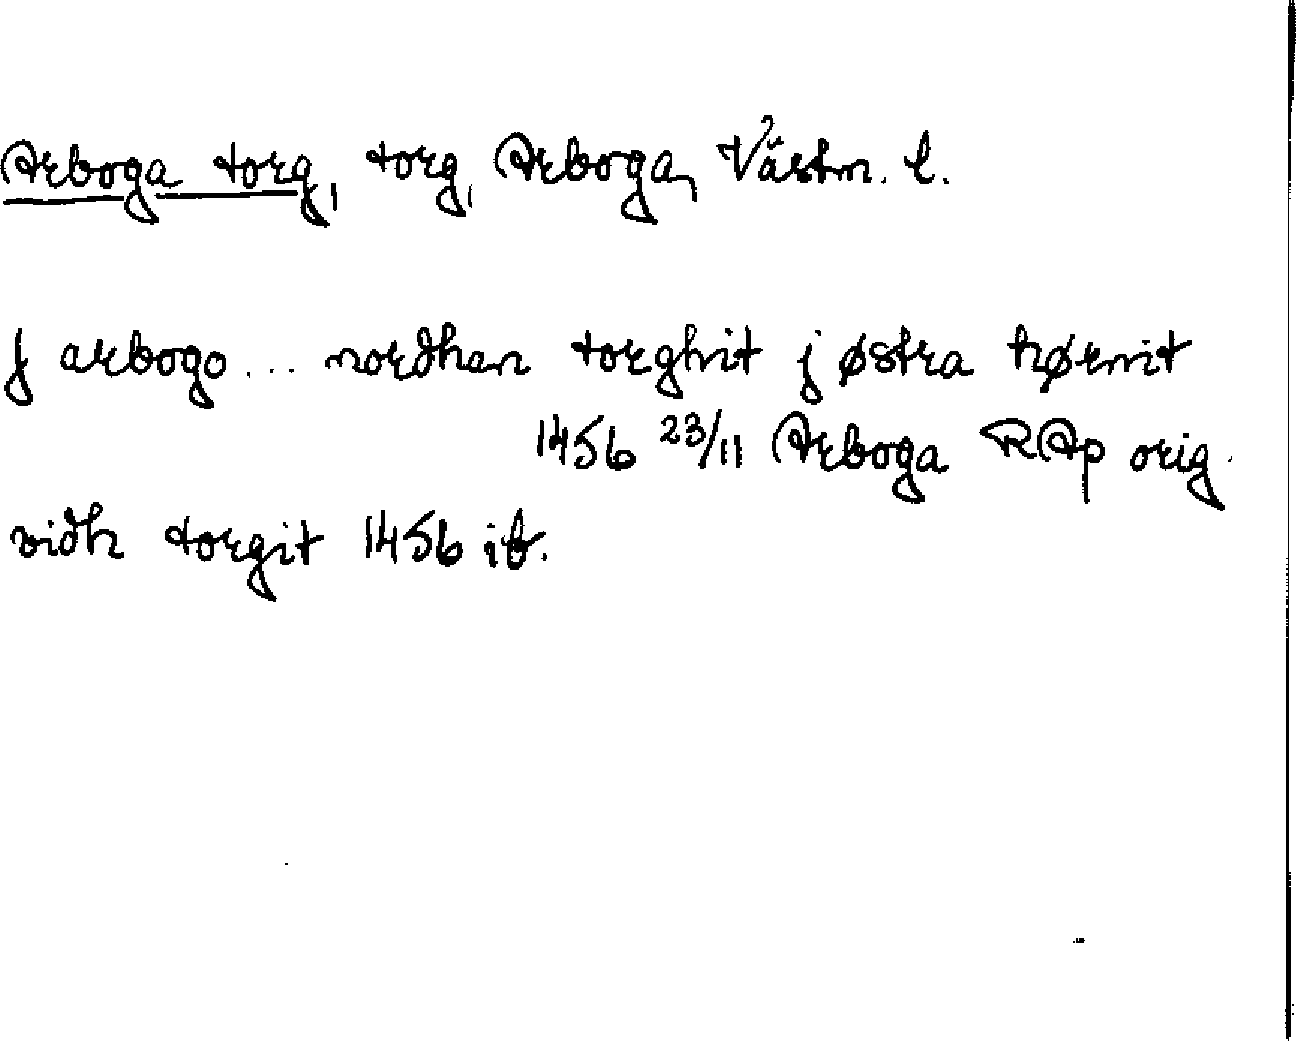 Arboga torg, torg, Arboga, Västm. l.
J arbogo... nordhan torghit j østra hørnit
1456 23/11 Arboga RAp orig.
vidh torgit 1456 ib.